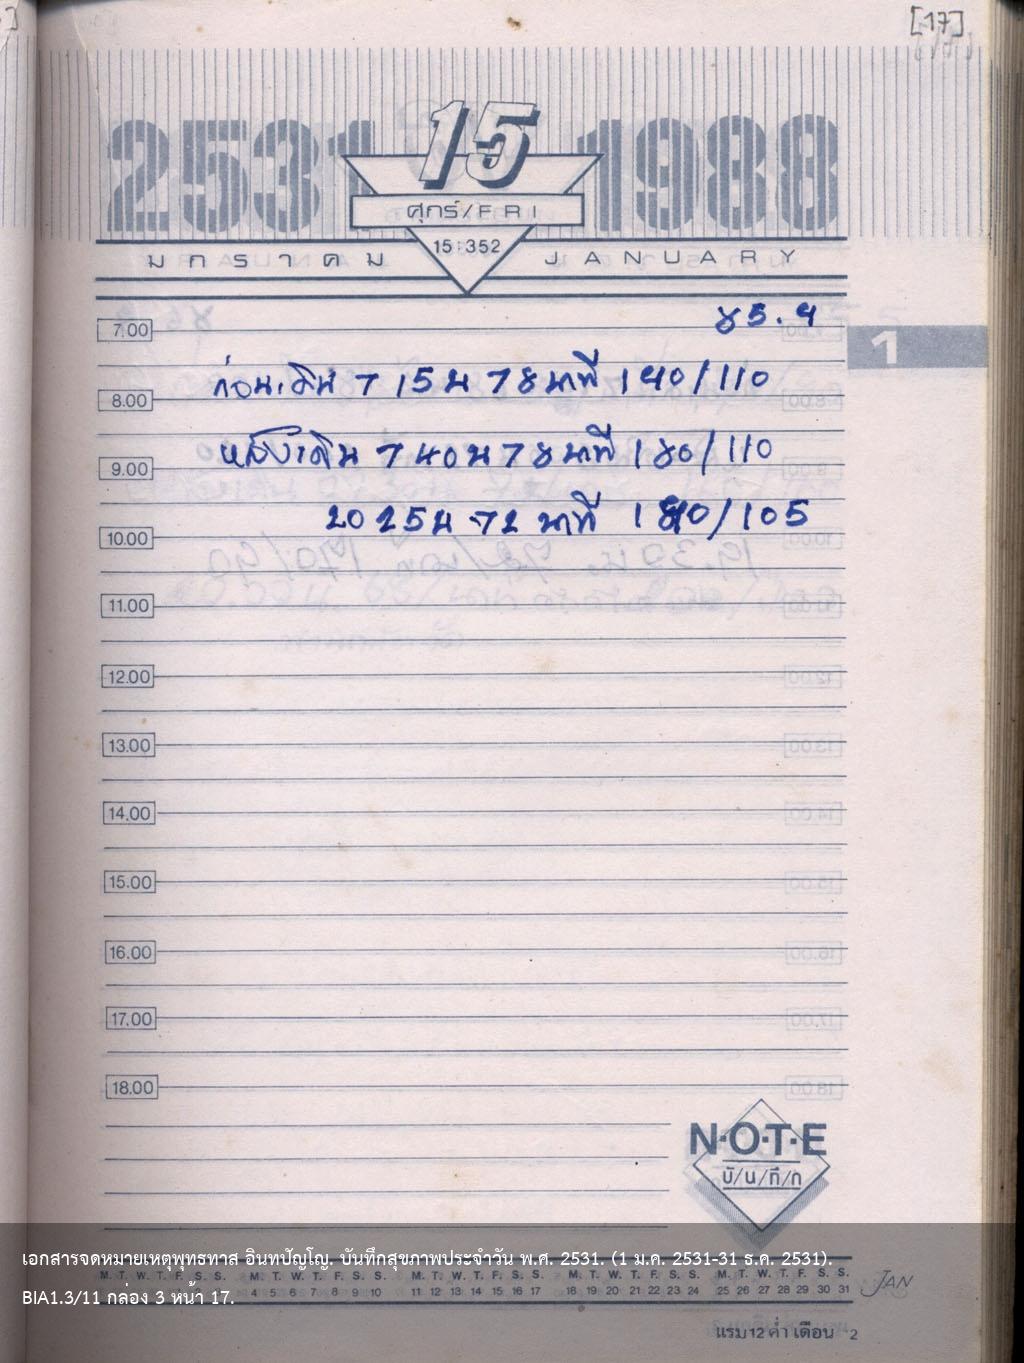 [17]
2531 15 1988
ศุกร์/FRI
15:352
มกราคม JANUARY
85.9
7.00
1
ก่อนเดิน 7 15 น 78 นาที 190/110
8.00
หลังเดิน 7 40 น 78 นาที 180/110
9.00
20 25 น 72 นาที 180/105
10.00
11.00
12.00
13.00
14.00
15.00
16.00
17.00
18.00
N·O·T·E
บั/น/ทึ/ก
เอกสารจดหมายเหตุพุทธทาส อินทปัญโญ. บันทึกสุขภาพประจำวัน พ.ศ. 2531. (1 ม.ค. 2531-31 ธ.ค. 2531).
M. T. W. T. F. S. S. M. T. W. T. F. S. S. M. T. W. T. F. S. S. M. T. W. T. F. S. S. M. T. W. T. F. S. S.
4 5 6 7 8 9 10 11 12 13 14 15 16 17 18 19 20 21 22 23 24 25 26 27 28 29 30 31 JAN
BIA1.3/11 กล่อง 3 หน้า 17.
แรม 12 ค่ำ เดือน 2